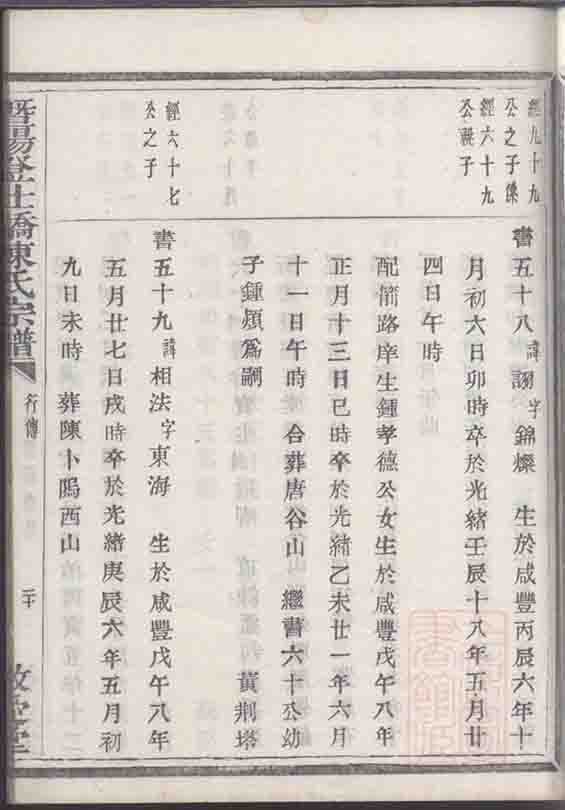 經九十九
公之子傑
經六十九
公祧子
書五十八諱詡字錦燦 生於咸豐丙辰六年十
月初六日卯時卒於光緒壬辰十八年五月廿
四日午時
配箭路庠生鍾孝德公女生於咸豐戊午八年
正月十三日巳時卒於光緒乙未廿一年六月
十一日午時 合葬唐谷山 繼書六十公幼
子鍾熲爲嗣 黃荆塔
經六十七
公之子
書五十九諱相法字東海 生於咸豐戊午八年
五月廿七日戌時卒於光緒庚辰六年五月初
九日未時 葬陳卜隖西山
暨陽登仕橋陳氏宗譜
行傳
二十
敦宣堂